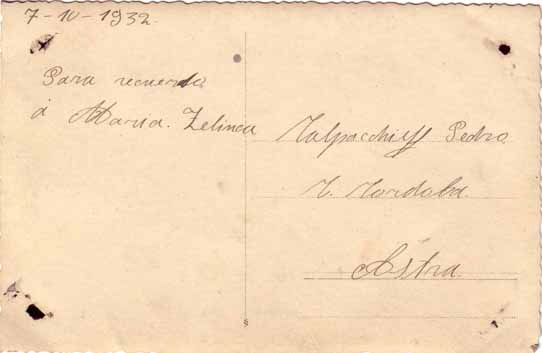 7-10-1932.
Para recuerdo
á Maria. Zelinca
Kalpacchieff Pedro
K. Kordoba.
Astra